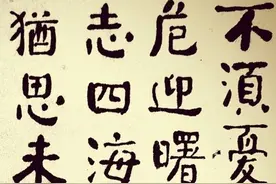 不須憂
危迎曙
志四海
猶思未